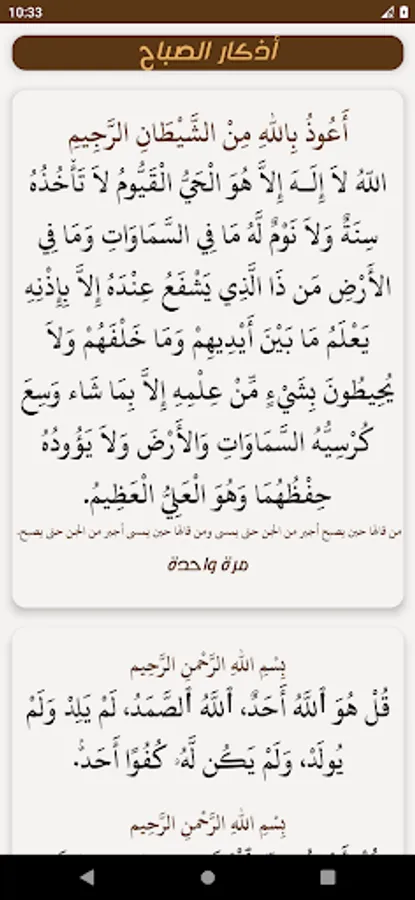 10:33
أذكار الصباح
أَعُوذُ بِاللهِ مِنْ الشَّيْطَانِ الرَّجِيمِ
اللّهُ لاَ إِلَـهَ إِلاَّ هُوَ الْحَيُّ الْقَيُّومُ لاَ تَأْخُذُهُ
سِنَةٌ وَلاَ نَوْمٌ لَّهُ مَا فِي السَّمَاوَاتِ وَمَا فِي
الأَرْضِ مَن ذَا الَّذِي يَشْفَعُ عِنْدَهُ إِلاَّ بِإِذْنِهِ
يَعْلَمُ مَا بَيْنَ أَيْدِيهِمْ وَمَا خَلْفَهُمْ وَلاَ
يُحِيطُونَ بِشَيْءٍ مِّنْ عِلْمِهِ إِلاَّ بِمَا شَاء وَسِعَ
كُرْسِيُّهُ السَّمَاوَاتِ وَالأَرْضَ وَلاَ يَؤُودُهُ
حِفْظُهُمَا وَهُوَ الْعَلِيُّ الْعَظِيمُ.
من قالها حين يصبح أجير من الجن حتى يمسى ومن قالها حين يمسى أجير من الجن حتى يصبح.
مرة واحدة
بِسْمِ اللهِ الرَّحْمنِ الرَّحِيم
قُلْ هُوَ ٱللَّهُ أَحَدٌ، ٱللَّهُ ٱلصَّمَدُ، لَمْ يَلِدْ وَلَمْ
يُولَدْ، وَلَمْ يَكُن لَّهُۥ كُفُوًا أَحَدٌۢ.
بِسْمِ اللهِ الرَّحْمنِ الرَّحِيم